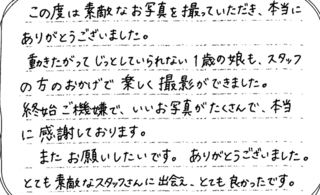 この度は素敵なお写真を撮っていただき、本当に
ありがとうございました。
動きたがってじっとしていられない1歳の娘も、スタッフ
の方のおかげで楽しく撮影ができました。
終始ご機嫌で、いいお写真がたくさんで、本当
に感謝しております。
またお願いしたいです。ありがとうございました。
とても素敵なスタッフさんに出会え、とても良かったです。